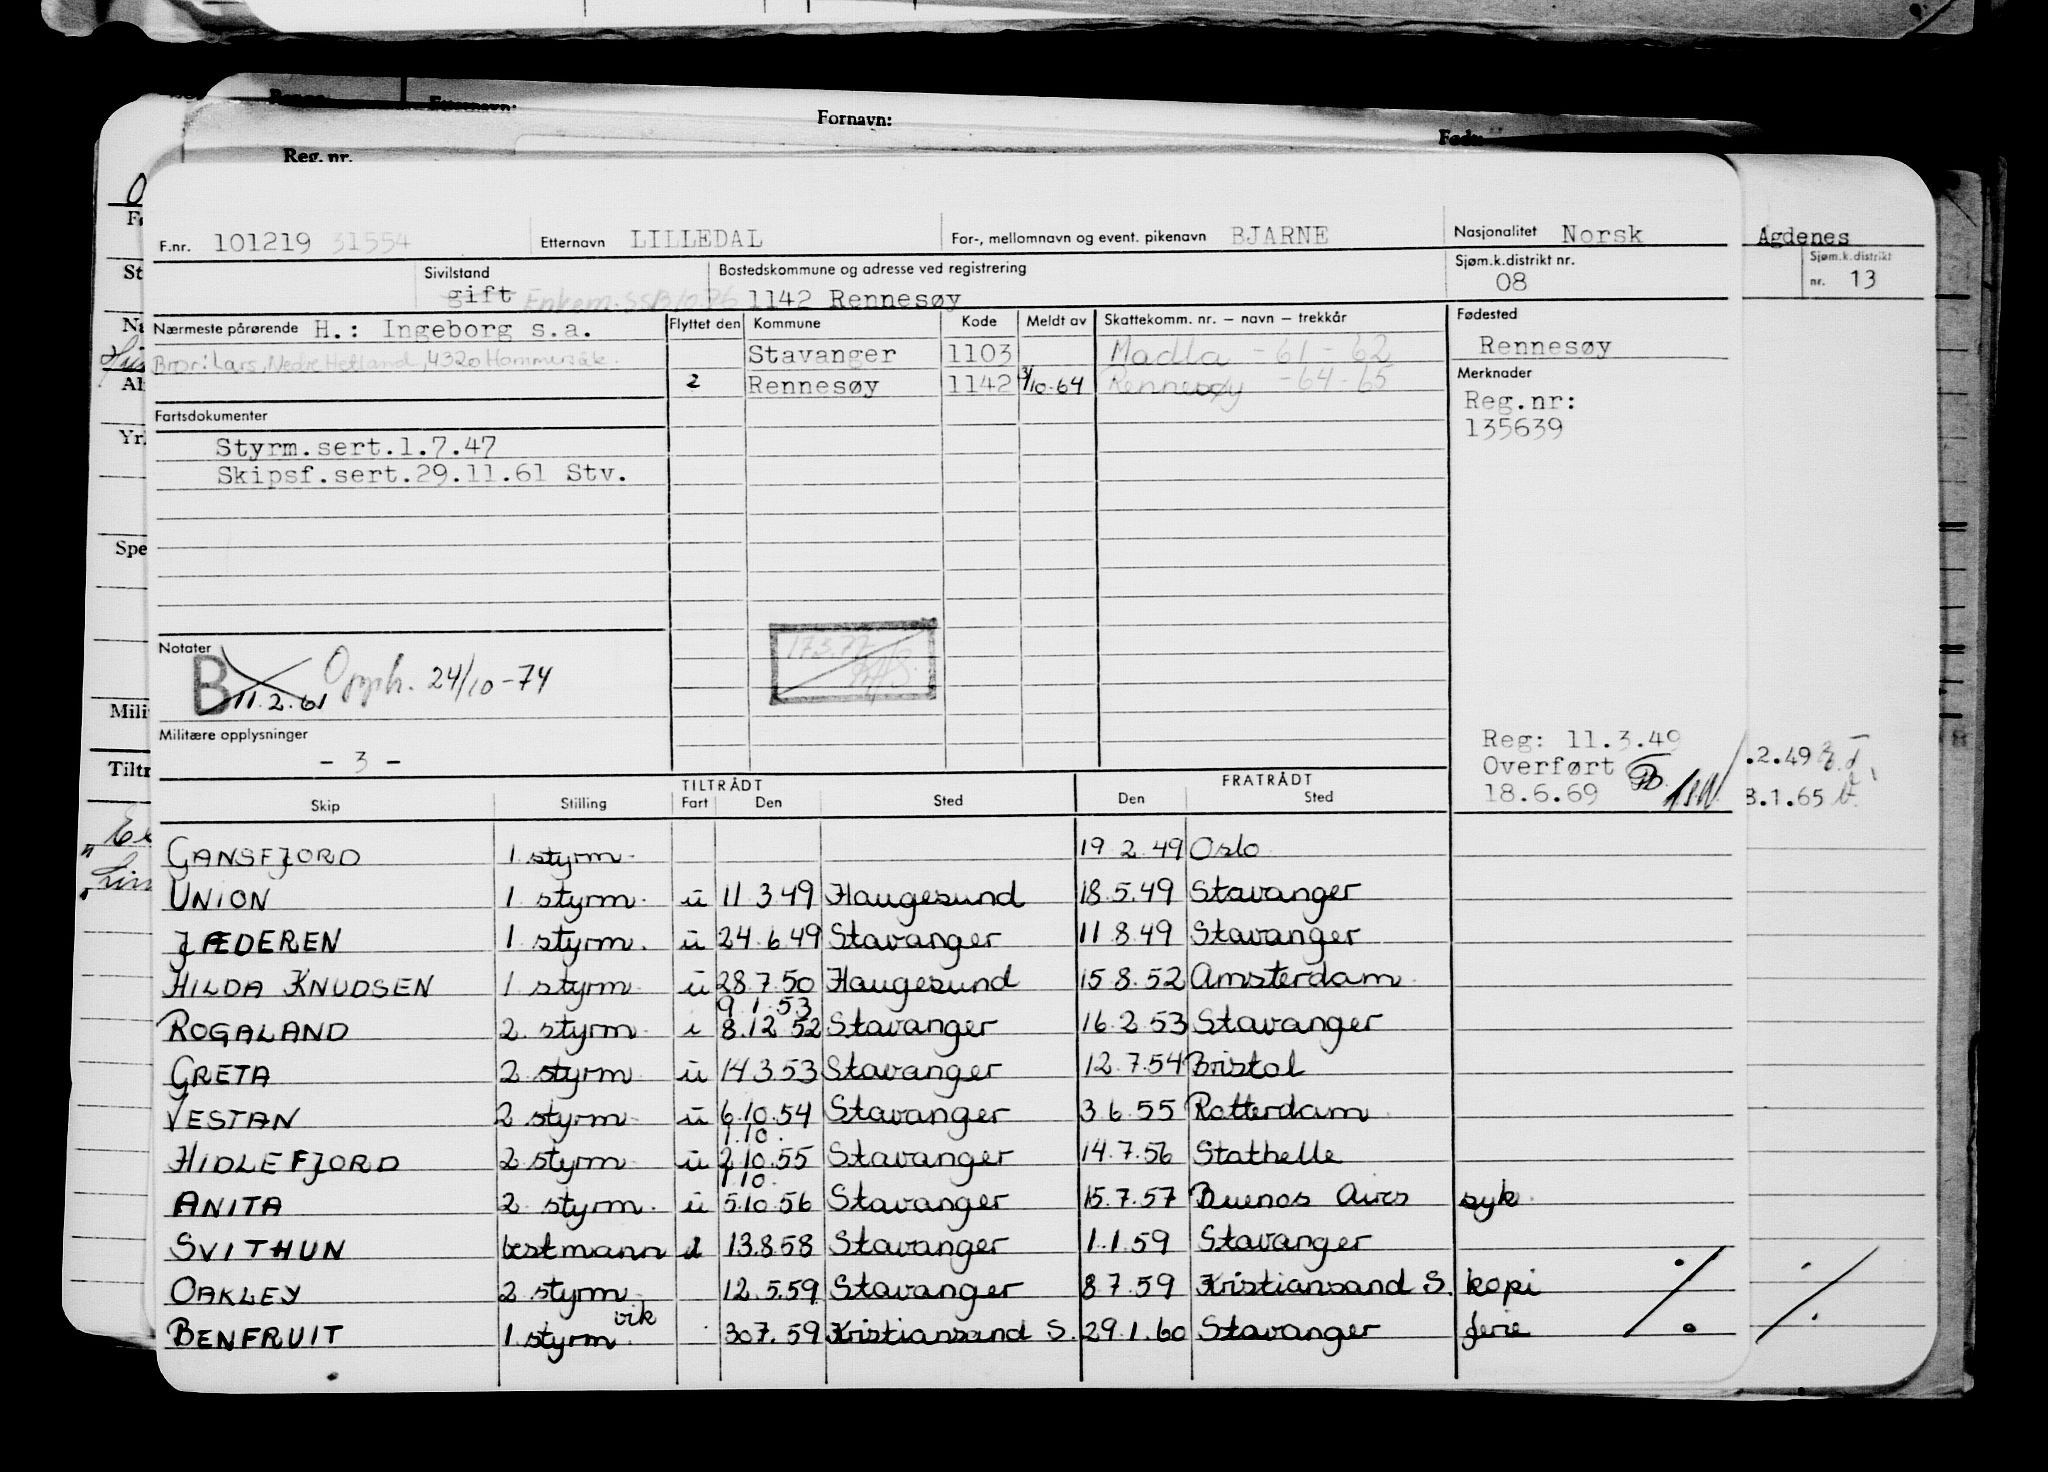 Fornavn:
Etternavn:
Reg. nr.
F.nr. 101219 31554 Etternavn LILLEDAL For-, mellomnavn og event. pikenavn BJARNE Nasjonalitet Norsk Agdenes
Sivilstand gift Bostedskommune og adresse ved registrering 1142 Rennesøy Sjøm.k.distrikt nr. 08 Sjøm.k.distrikt nr. 13
Nærmeste pårørende H.: Ingeborg s.a. Flyttet den Kommune Kode Meldt av Skattekomm. nr. – navn – trekkår Fødested
Bror: Lars, Nedre Hetland, 4320 Hommersåk. Stavanger 1103 Madla - 61 - 62 Rennesøy
2 Rennesøy 1142 /10-64 Rennesøy - 64 - 65 Merknader
Reg.nr:
135639
Fartsdokumenter
Styrm.sert.1.7.47
Skipsf.sert.29.11.61 Stv.
Spe
Notater
B 11.2.61 Opph. 24/10-74
17.3.77
Militære opplysninger
- 3 -
Reg: 11.3.49
Overført
18.6.69
.2.49
8.1.65
TILTRÅDT FRATRÅDT
Skip Stilling Fart Den Sted Den Sted
GANSFJORD 1 styrm. 19.2.49 Oslo
UNION 1 styrm. u 11.3.49 Haugesund 18.5.49 Stavanger
JÆDEREN 1 styrm. u 24.6.49 Stavanger 11.8.49 Stavanger
HILDA KNUDSEN 1 styrm. u 28.7.50 Haugesund 15.8.52 Amsterdam
9.1.53
ROGALAND 2. styrm. i 8.12.52 Stavanger 16.2.53 Stavanger
GRETA 2 styrm. u 14.3.53 Stavanger 12.7.54 Bristol
VESTAN 2 styrm. u 6.10.54 Stavanger 3.6.55 Rotterdam
1.10.
HIDLEFJORD 2 styrm. u 2.10.55 Stavanger 14.7.56 Stathelle
1.10.
ANITA 2 styrm. u 5.10.56 Stavanger 15.7.57 Buenos Aires syk.
SVITHUN bestmann d 13.8.58 Stavanger 1.1.59 Stavanger
OAKLEY 2 styrm. 12.5.59 Stavanger 8.7.59 Kristiansand S. kopi
BENFRUIT 1. styrm. vik 30.7.59 Kristiansand S. 29.1.60 Stavanger ferie